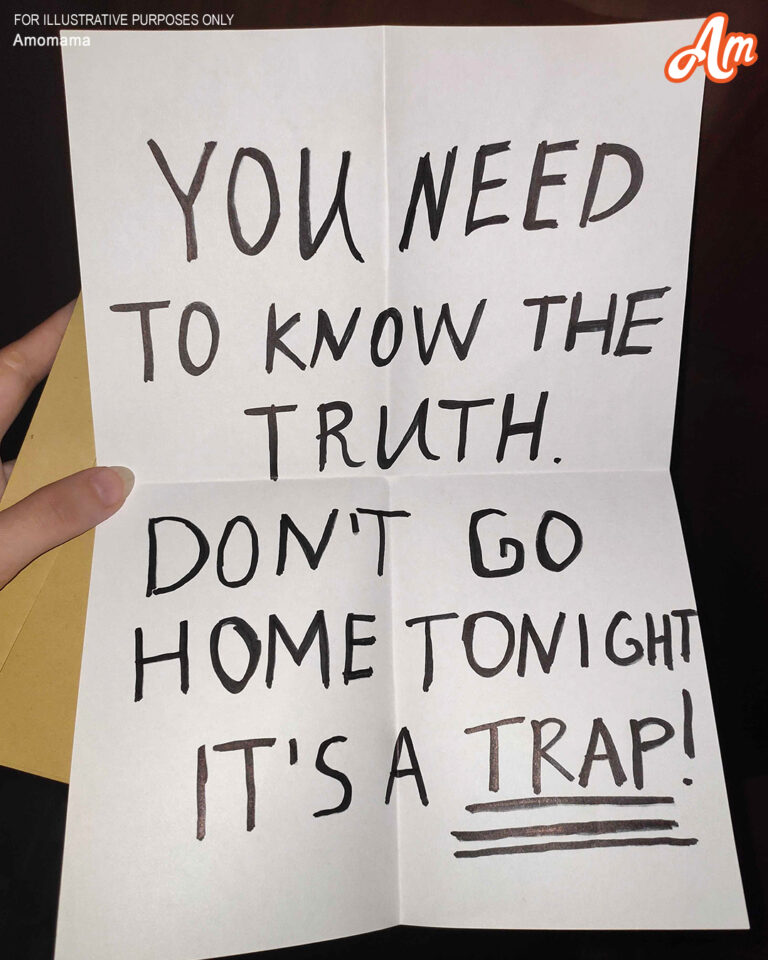 FOR ILLUSTRATIVE PURPOSES ONLY
Amomama
Am
YOU NEED
TO KNOW THE
TRUTH.
DON'T GO
HOME TONIGHT
IT'S A TRAP!